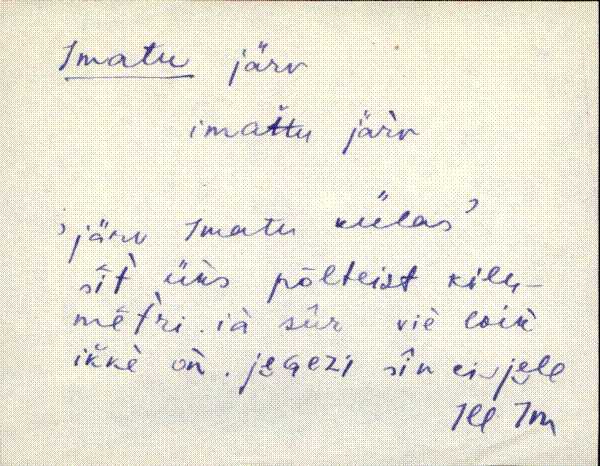 Imatu järv
imattu järv
'järv Imatu külas'
sīt̀ üks pōlteist kilu-
mētri. ià sūr viè loik
ikkè òn. jegezi sīn ei jele
Ill Im